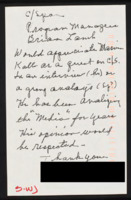 C/Span
Program Managers
Brian Lamb
Would appreciate Marvin
Kalb as a guest on C/S.
In an interview (hr) or
a group analysis (
He has been analyzing
the "Media" for years
His opinion would
be respected.
Thank you.